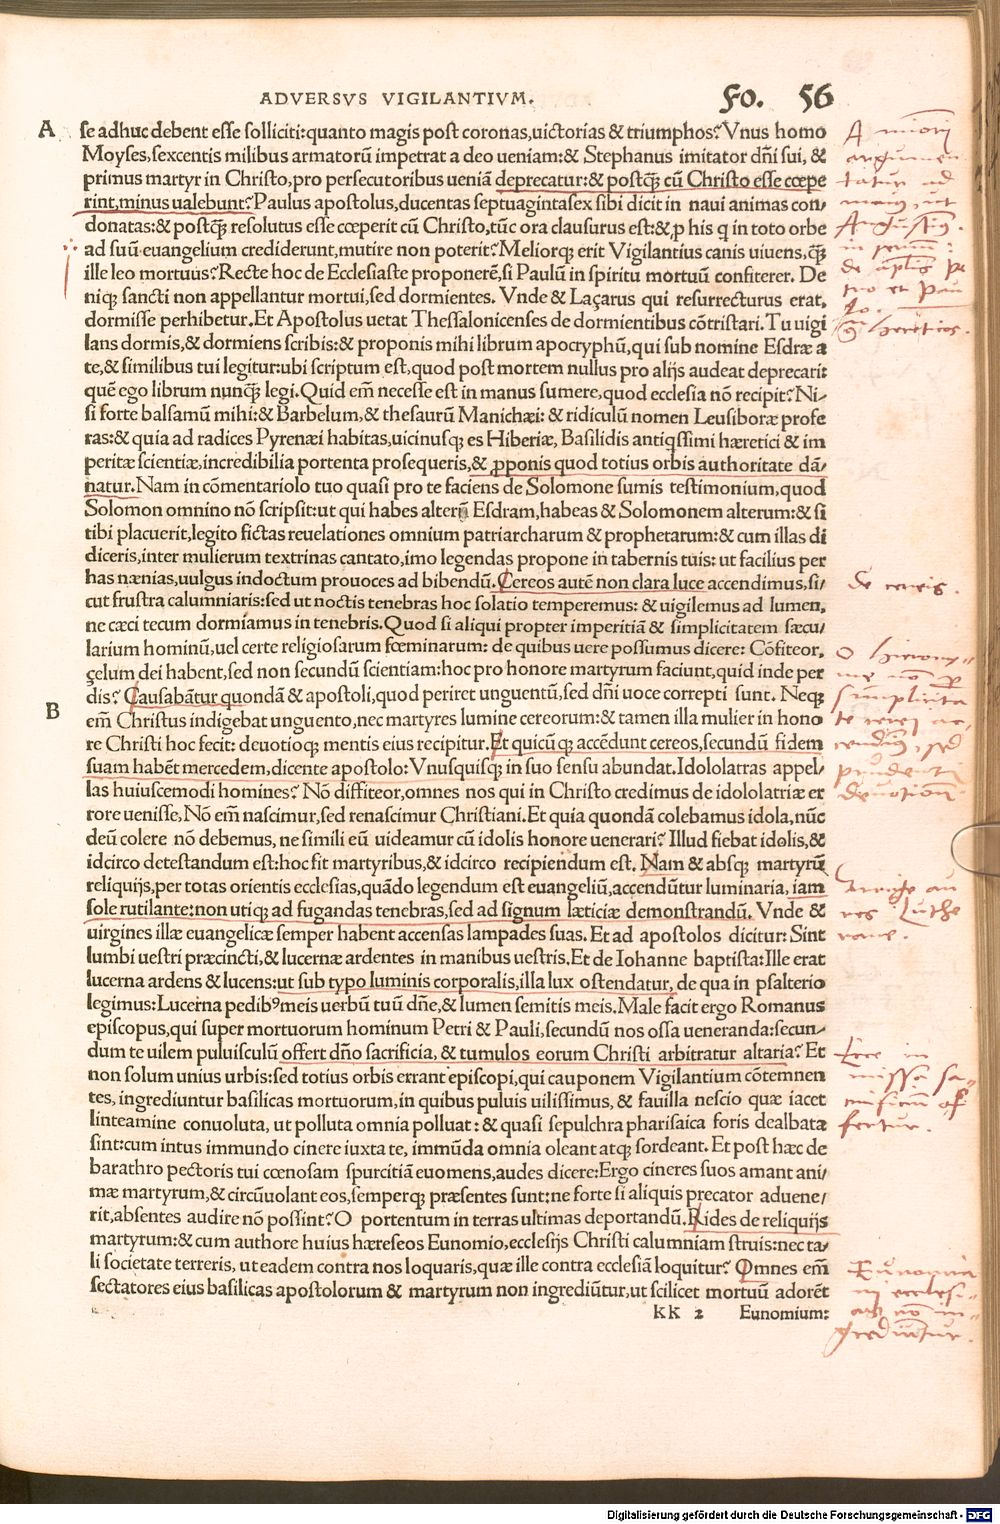 ADVERSVS VIGILANTIVM. Fo. 56
A se adhuc debent esse solliciti: quanto magis post coronas, uictorias & triumphos? Vnus homo
Moyses, sexcentis milibus armatorũ impetrat a deo ueniam: & Stephanus imitator dñi sui, &
primus martyr in Christo, pro persecutoribus ueniã deprecatur: & postq̃ cũ Christo esse cœpe/
rint, minus ualebunt? Paulus apostolus, ducentas septuagintasex sibi dicit in naui animas con/
donatas: & postq̃ resolutus esse cœperit cũ Christo, tũc ora clausurus est: & ꝓ his q in toto orbe
ad suũ euangelium crediderunt, mutire non poterit? Meliorqꝫ erit Vigilantius canis uiuens, q̃
ille leo mortuus? Recte hoc de Ecclesiaste proponerẽ, si Paulũ in spiritu mortuũ confiterer. De
niqꝫ sancti non appellantur mortui, sed dormientes. Vnde & Laçarus qui resurrecturus erat,
dormisse perhibetur. Et Apostolus uetat Thessalonicenses de dormientibus cõtristari. Tu uigi
lans dormis, & dormiens scribis: & proponis mihi librum apocryphũ, qui sub nomine Esdræ a
te, & similibus tui legitur: ubi scriptum est, quod post mortem nullus pro alijs audeat deprecari:
quẽ ego librum nunq̃ legi. Quid em̃ necesse est in manus sumere, quod ecclesia nõ recipit? Ni/
si forte balsamũ mihi: & Barbelum, & thesaurũ Manichæi: & ridiculũ nomen Leusiboræ profe
ras: & quia ad radices Pyrenæi habitas, uicinusqꝫ es Hiberiæ, Basilidis antiqssimi hæretici & im
peritæ scientiæ, incredibilia portenta prosequeris, & ꝓponis quod totius orbis authoritate dã/
natur. Nam in cõmentariolo tuo quasi pro te faciens de Solomone sumis testimonium, quod
Solomon omnino nõ scripsit: ut qui habes alterũ Esdram, habeas & Solomonem alterum: & si
tibi placuerit, legito fictas reuelationes omnium patriarcharum & prophetarum: & cum illas di
diceris, inter mulierum textrinas cantato, imo legendas propone in tabernis tuis: ut facilius per
has nænias, uulgus indoctum prouoces ad bibendũ. Cereos autẽ non clara luce accendimus, si/
cut frustra calumniaris: sed ut noctis tenebras hoc solatio temperemus: & uigilemus ad lumen,
ne cæci tecum dormiamus in tenebris. Quod si aliqui propter imperitiã & simplicitatem sæcu/
larium hominũ, uel certe religiosarum fœminarum: de quibus uere possumus dicere: Cõfiteor,
çelum dei habent, sed non secundũ scientiam: hoc pro honore martyrum faciunt, quid inde per
dis? Causabãtur quondã & apostoli, quod periret unguentũ, sed dñi uoce correpti sunt. Neqꝫ
B em̃ Christus indigebat unguento, nec martyres lumine cereorum: & tamen illa mulier in hono
re Christi hoc fecit: deuotioqꝫ mentis eius recipitur. Et quicũqꝫ accẽdunt cereos, secundũ fidem
suam habẽt mercedem, dicente apostolo: Vnusquisqꝫ in suo sensu abundat. Idololatras appel/
las huiuscemodi homines? Nõ diffiteor, omnes nos qui in Christo credimus de idololatriæ er
rore uenisse, Nõ em̃ nascimur, sed renascimur Christiani. Et quia quondã colebamus idola, nũc
deũ colere nõ debemus, ne simili eũ uideamur cũ idolis honore uenerari? Illud fiebat idolis, &
idcirco detestandum est: hoc fit martyribus, & idcirco recipiendum est. Nam & absqꝫ martyrũ
reliquijs, per totas orientis ecclesias, quãdo legendum est euangeliũ, accendũtur luminaria, iam
sole rutilante: non utiqꝫ ad fugandas tenebras, sed ad signum læticiæ demonstrandũ. Vnde &
uirgines illæ euangelicæ semper habent accensas lampades suas. Et ad apostolos dicitur: Sint
lumbi uestri præcincti, & lucernæ ardentes in manibus uestris. Et de Iohanne baptista: Ille erat
lucerna ardens & lucens: ut sub typo luminis corporalis, illa lux ostendatur, de qua in psalterio
legimus: Lucerna pedibꝰ meis uerbũ tuũ dñe, & lumen semitis meis. Male facit ergo Romanus
episcopus, qui super mortuorum hominum Petri & Pauli, secundũ nos ossa ueneranda: secun/
dum te uilem puluisculũ offert dño sacrificia, & tumulos eorum Christi arbitratur altaria? Et
non solum unius urbis: sed totius orbis errant episcopi, qui cauponem Vigilantium cõtemnen
tes, ingrediuntur basilicas mortuorum, in quibus puluis uilissimus, & fauilla nescio quæ iacet
linteamine conuoluta, ut polluta omnia polluat: & quasi sepulchra pharisaica foris dealbata
sint: cum intus immundo cinere iuxta te, immũda omnia oleant atqꝫ sordeant. Et post hæc de
barathro pectoris tui cœnosam spurcitiã euomens, audes dicere: Ergo cineres suos amant ani/
mæ martyrum, & circũuolant eos, semperqꝫ præsentes sunt: ne forte si aliquis precator aduene/
rit, absentes audire nõ possint? O portentum in terras ultimas deportandũ. Rides de reliquijs
martyrum: & cum authore huius hæreseos Eunomio, ecclesijs Christi calumniam struis: nec ta/
li societate terreris, ut eadem contra nos loquaris, quæ ille contra ecclesiã loquitur? Omnes em̃
sectatores eius basilicas apostolorum & martyrum non ingrediũtur, ut scilicet mortuũ adorẽt
kk 2 Eunomium:
A minori
argumen
tatur ad
maius, ut
Augustinꝰ
de aplis Pe
tro et Pau
lo.
hereticos.
De cereis.
O hierony/
me nõ
simplicita
te cerei ac
cenduntur, sed
prudenti
deuotione
Arrige au
res Luthe
rane.
Ecce in
missa sa/
crificium of
fertur.
Eunomia
ni ecclesi/
as nõ in
grediũtur.
Digitalisierung gefördert durch die Deutsche Forschungsgemeinschaft - DFG